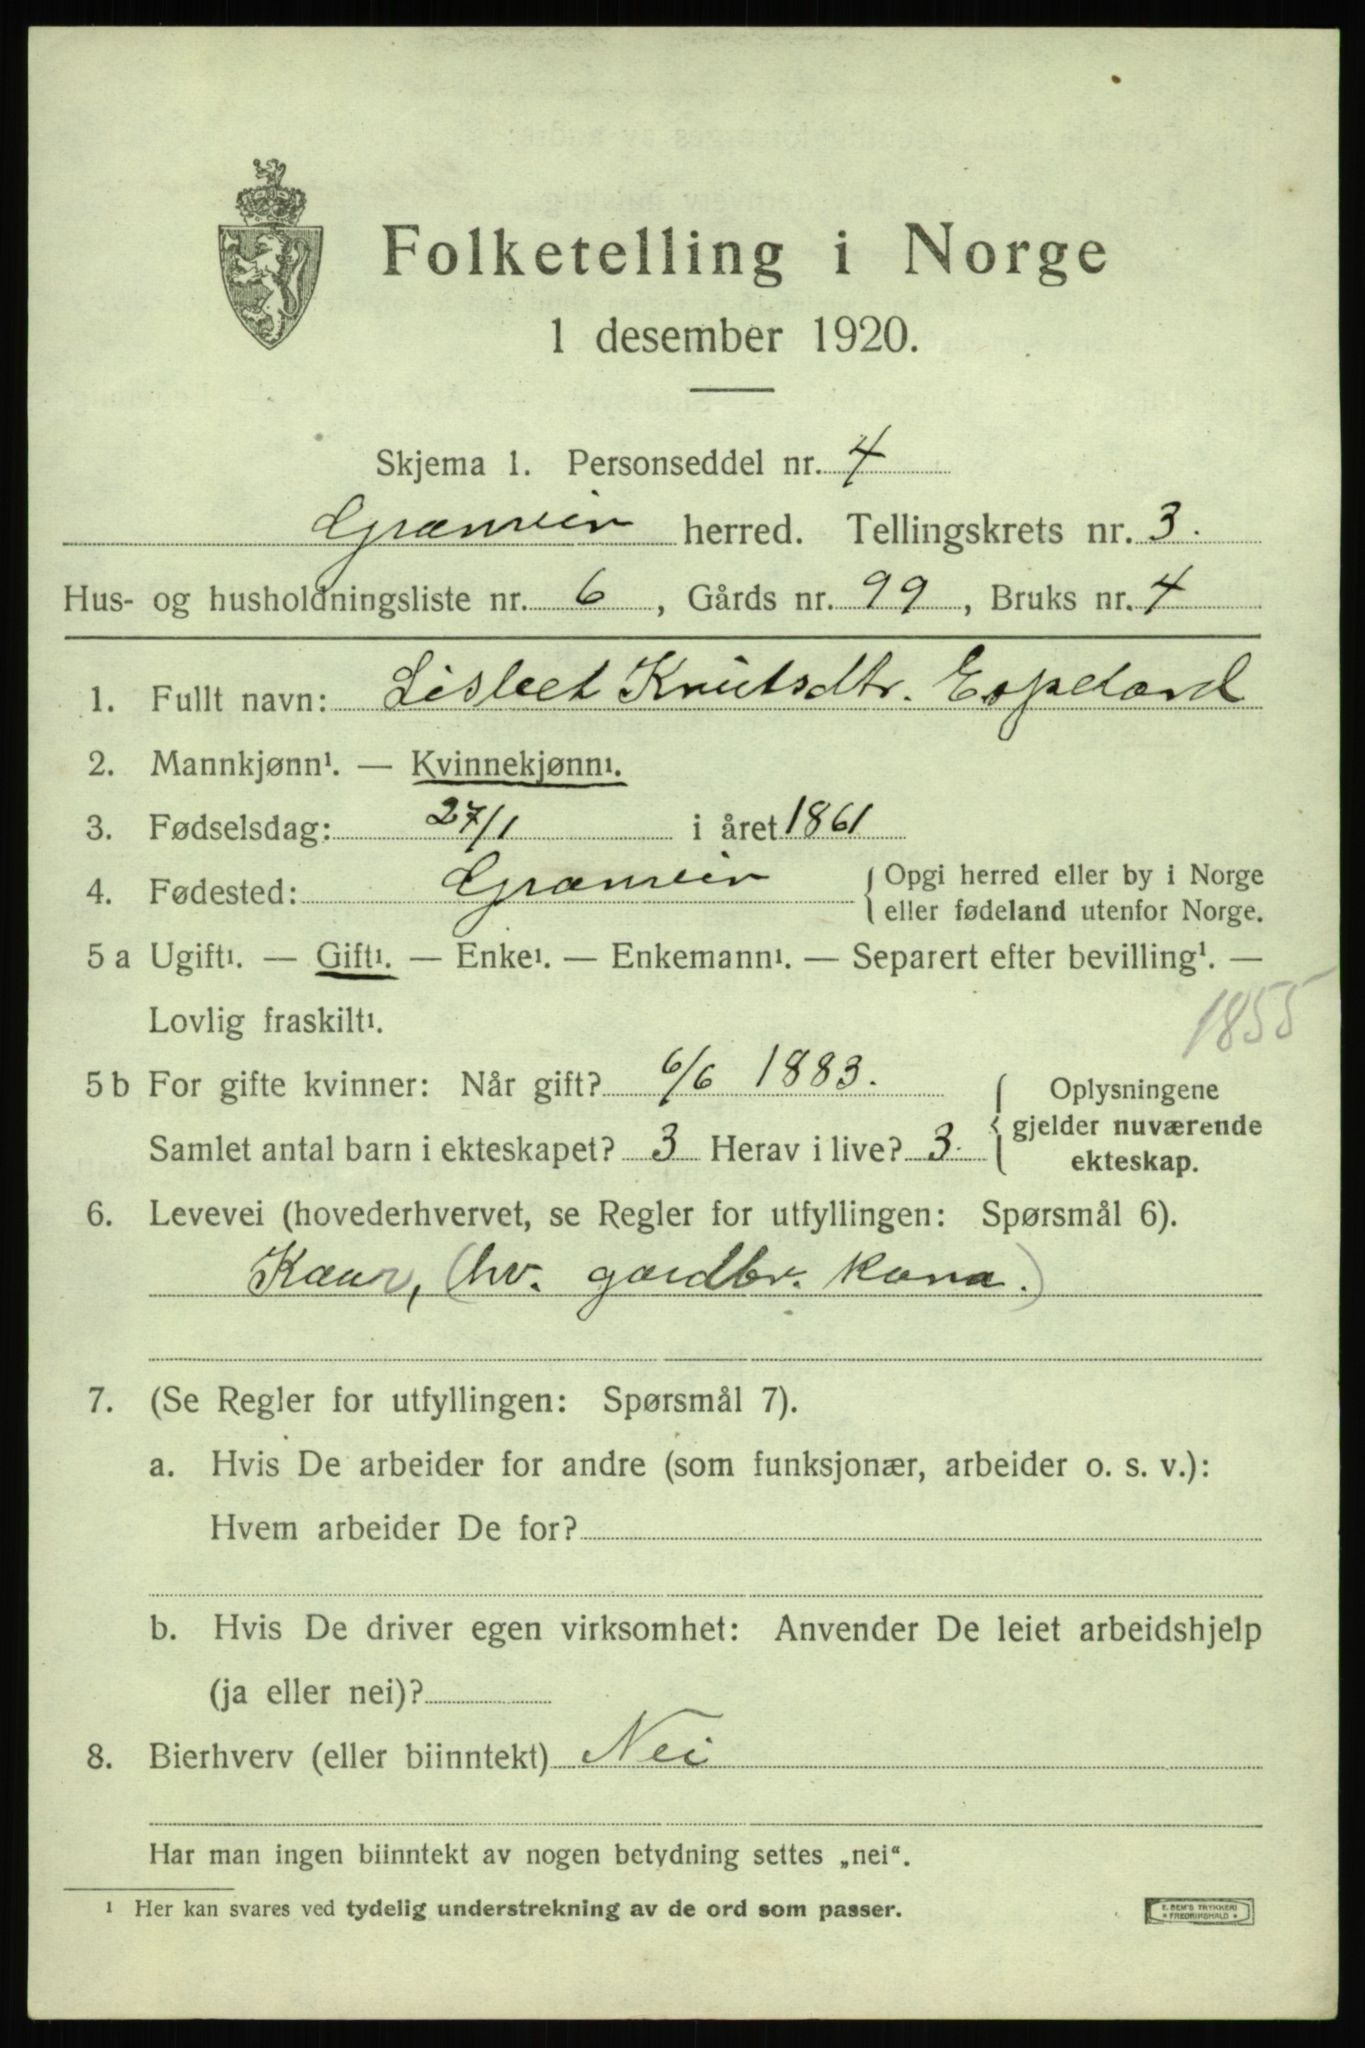 Folketelling i Norge
1 desember 1920.
Skjema 1. Personseddel nr. 4
Granvin herred. Tellingskrets nr. 3.
Hus- og husholdningsliste nr. 6, Gårds nr. 99, Bruks nr. 4
1. Fullt navn: Lisbet Knutsdtr. Espeland
2. Mannkjønn¹. — Kvinnekjønn¹.
3. Fødselsdag: 27/1 i året 1861
4. Fødested: Granvin { Opgi herred eller by i Norge
eller fødeland utenfor Norge.
5 a Ugift¹. — Gift¹. — Enke¹. — Enkemann¹. — Separert efter bevilling¹. —
Lovlig fraskilt¹.
1855
5 b For gifte kvinner: Når gift? 6/6 1883. { Oplysningene
gjelder nuværende
ekteskap.
Samlet antal barn i ekteskapet? 3 Herav i live? 3.
6. Levevei (hovederhvervet, se Regler for utfyllingen: Spørsmål 6).
(hv. gardbr. kona.)
7. (Se Regler for utfyllingen: Spørsmål 7).
a. Hvis De arbeider for andre (som funksjonær, arbeider o. s. v.):
Hvem arbeider De for?
b. Hvis De driver egen virksomhet: Anvender De leiet arbeidshjelp
(ja eller nei)?
8. Bierhverv (eller biinntekt) Nei
Har man ingen biinntekt av nogen betydning settes „nei“.
¹ Her kan svares ved tydelig understrekning av de ord som passer.
E. SEM'S TRYKKERI
FREDRIKSHALD